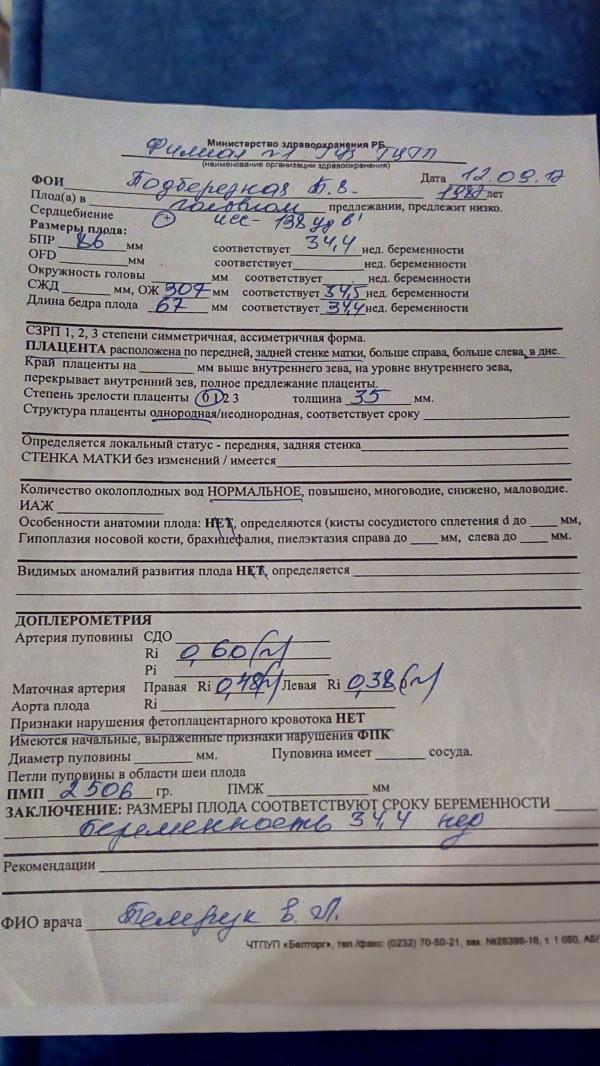 Министерство здравоохранения РБ
Филиал №1
(наименование организации здравоохранения)
ФОИ Подберезная Т. В. Дата 12.09.17
1987 лет
Плод(а) в головном предлежании, предлежит низко.
Сердцебиение (+) чсс- 138 уд в'
Размеры плода:
БПР 86 мм соответствует 34,4 нед. беременности
OFD мм соответствует нед. беременности
Окружность головы мм соответствует нед. беременности
СЖД мм, ОЖ 307 мм соответствует 34,5 нед. беременности
Длина бедра плода 67 мм соответствует 34,4 нед. беременности
СЗРП 1, 2, 3 степени симметричная, ассиметричная форма.
ПЛАЦЕНТА расположена по передней, задней стенке матки, больше справа, больше слева, в дне.
Край плаценты на мм выше внутреннего зева, на уровне внутреннего зева,
перекрывает внутренний зев, полное предлежание плаценты.
Степень зрелости плаценты 0 1 2 3 толщина 35 мм.
Структура плаценты однородная/неоднородная, соответствует сроку
Определяется локальный статус - передняя, задняя стенка
СТЕНКА МАТКИ без изменений / имеется
Количество околоплодных вод НОРМАЛЬНОЕ, повышено, многоводие, снижено, маловодие.
ИАЖ
Особенности анатомии плода: НЕТ, определяются (кисты сосудистого сплетения d до мм,
Гипоплазия носовой кости, брахицефалия, пиелэктазия справа до мм, слева до мм.
Видимых аномалий развития плода НЕТ, определяется
ДОПЛЕРОМЕТРИЯ
Артерия пуповины СДО
Ri 0,60 (N)
Pi
Маточная артерия Правая Ri 0,48 (N) Левая Ri 0,38 (N)
Аорта плода Ri
Признаки нарушения фетоплацентарного кровотока НЕТ
Имеются начальные, выраженные признаки нарушения ФПК
Диаметр пуповины мм. Пуповина имеет сосуда.
Петли пуповины в области шеи плода
ПМП 2506 гр. ПМЖ мм
ЗАКЛЮЧЕНИЕ: РАЗМЕРЫ ПЛОДА СООТВЕТСТВУЮТ СРОКУ БЕРЕМЕННОСТИ
беременность 34,4 нед
Рекомендации
ФИО врача В. Л.
ЧТПУП «Белторг», тел./факс: (0232) 70-50-21, зак. №28396-16, т. 1 050, А5/